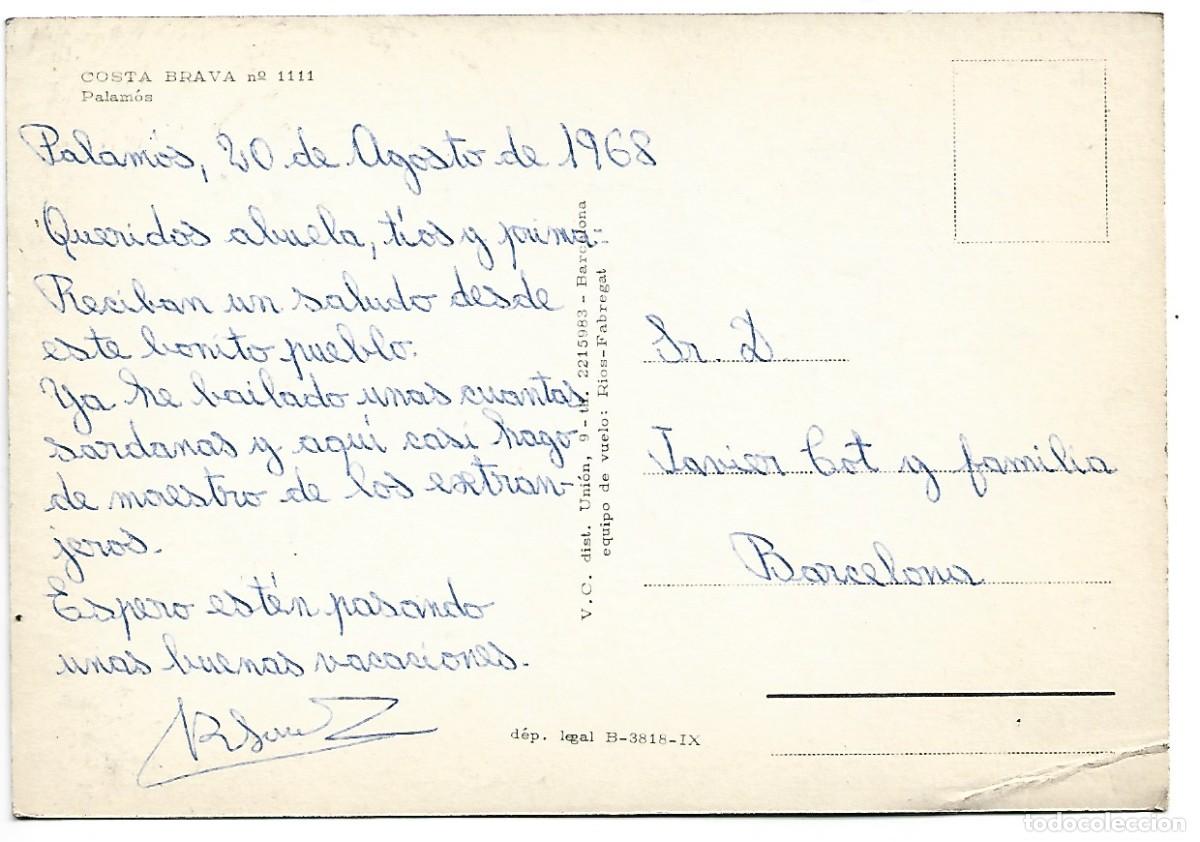 COSTA BRAVA nº 1111
Palamós
Palamós, 20 de Agosto de 1968
Queridos abuela, tíos y prima:
Reciban un saludo desde
este bonito pueblo.
Ya he bailado unas cuantas
sardanas y aquí casi hago
de maestro de los extran-
jeros.
Espero estén pasando
unas buenas vacaciones.
V.C. dist. Unión, 9 - tf. 2215983 - Barcelona
equipo de vuelo: Rios-Fabregat
Sr. D
Javier Cot y familia
Barcelona
dép. legal B-3818-IX
todocoleccion